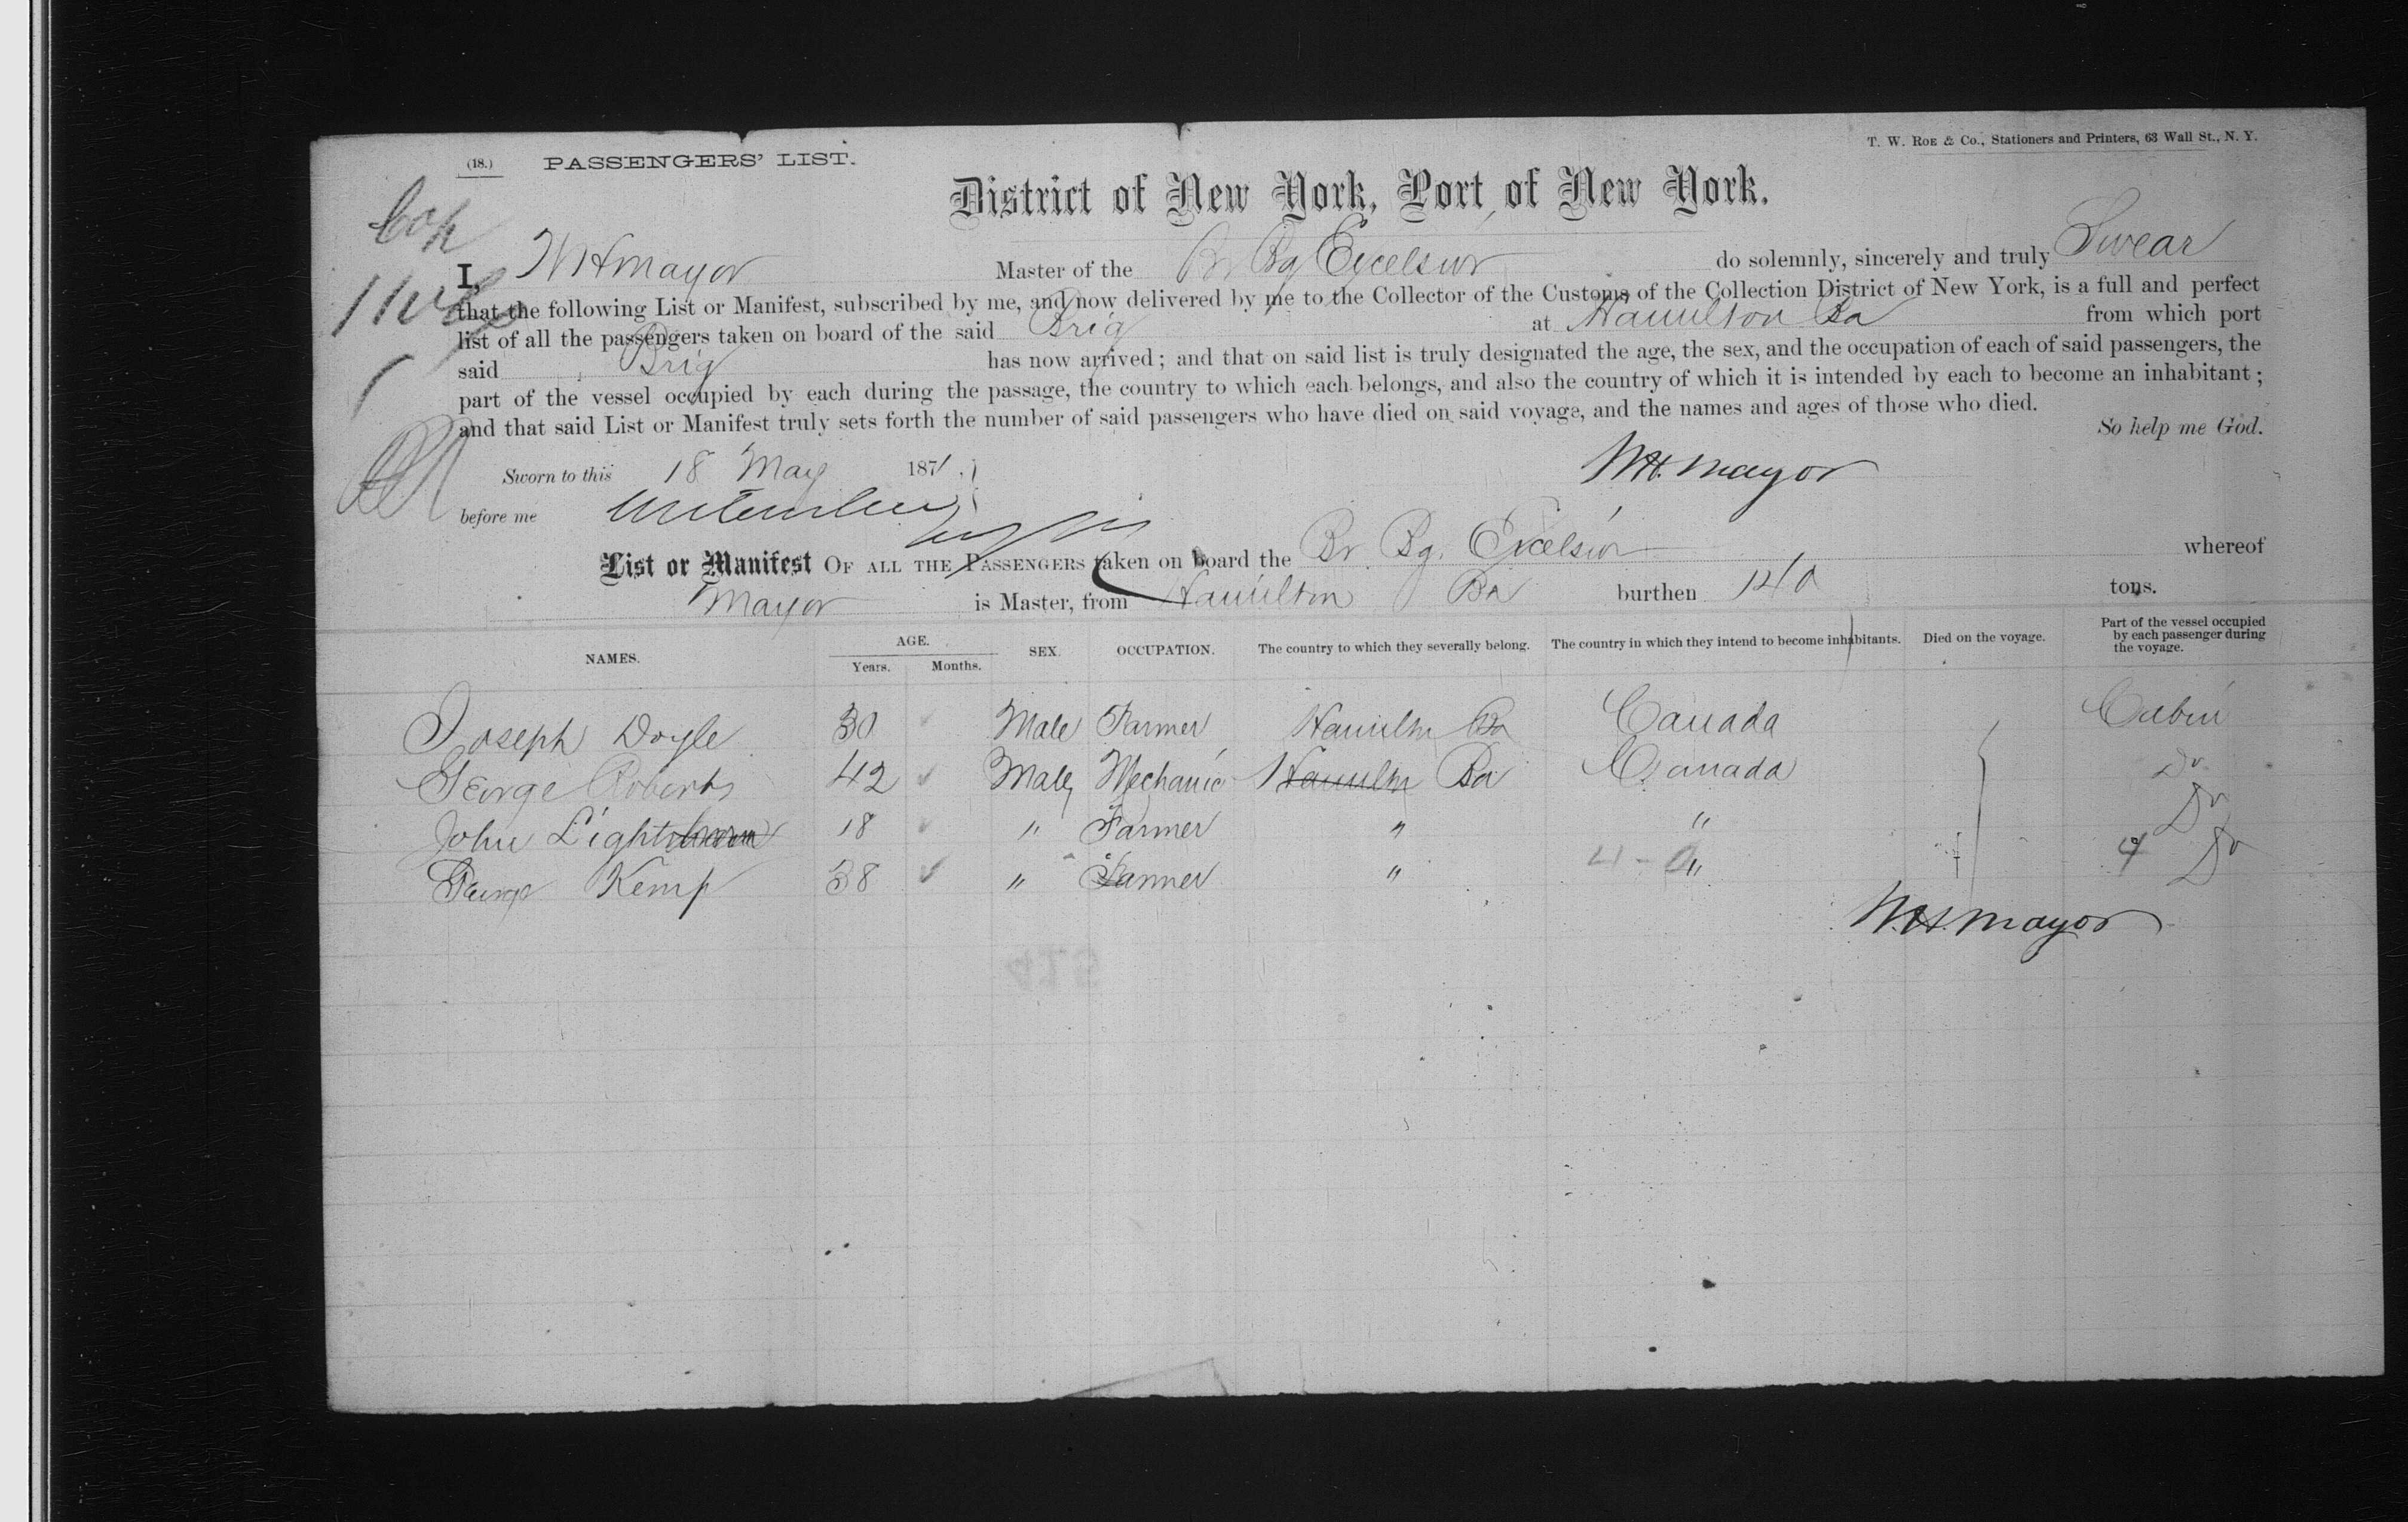 (18.) PASSENGERS' LIST.
T. W. Roe & Co., Stationers and Printers, 63 Wall St., N. Y.
District of New York, Port of New York.
I, WHMayor Master of the Br Bg Excelsior do solemnly, sincerely and truly Swear
that the following List or Manifest, subscribed by me, and now delivered by me to the Collector of the Customs of the Collection District of New York, is a full and perfect
list of all the passengers taken on board of the said Brig at Hamilton Ba from which port
said Brig has now arrived; and that on said list is truly designated the age, the sex, and the occupation of each of said passengers, the
part of the vessel occupied by each during the passage, the country to which each belongs, and also the country of which it is intended by each to become an inhabitant;
and that said List or Manifest truly sets forth the number of said passengers who have died on said voyage, and the names and ages of those who died.
So help me God.
Sworn to this 18 May 1871.
W.H. Mayor
before me
List or Manifest OF ALL THE PASSENGERS taken on board the Br Bg. Excelsior whereof
Mayor is Master, from Hamilton Ba burthen 140 tons.
NAMES. AGE. Years. Months. SEX. OCCUPATION. The country to which they severally belong. The country in which they intend to become inhabitants. Died on the voyage. Part of the vessel occupied by each passenger during the voyage.
Joseph Doyle 30 Male Farmer Hamilton Ba Canada Cabin
George Roberts 42 Male Mechanic Hamilton Ba Canada Do
John 18 " Farmer " " Do
George Kemp 38 " Farmer " " Do
W.H. Mayor